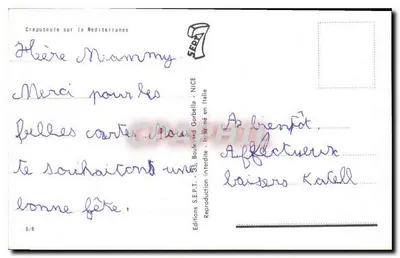 Crépuscule sur la Méditerranée
Hère Mammy.
Merci pour les
belles cartes. Nous
te souhaitons une
bonne fête.
S/6
SEPT
Editions S.E.P.T. - 53, Boulevard Gorbella - NICE
Reproduction interdite - Imprimé en Italie
A bientôt.
Affectueux
baisers Katell